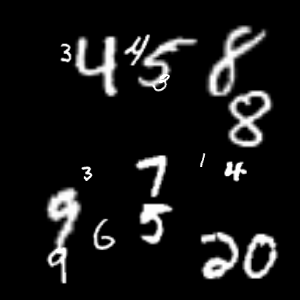 3 4 4 5 8
8 8
3 7 1 4
9 6 5
9 2 0